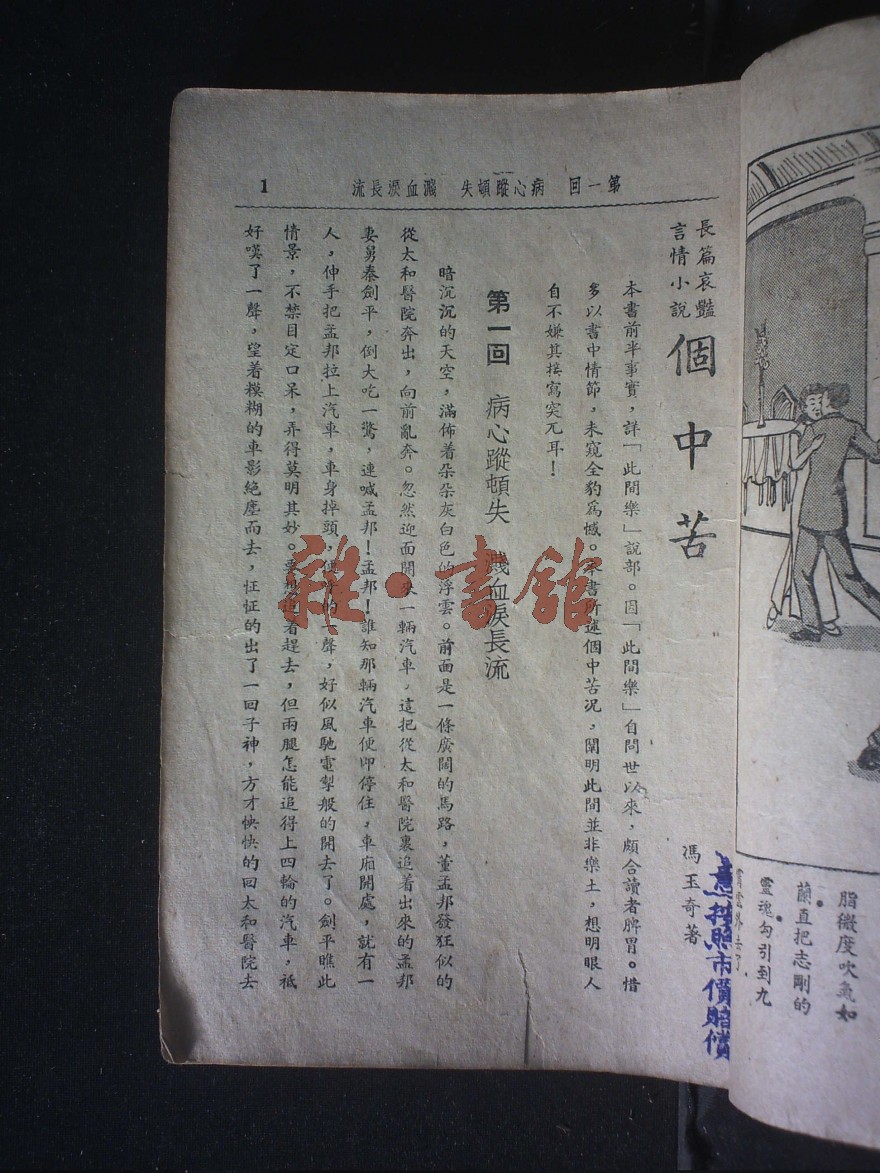 第一回　病心蹤頓失　濺血淚長流
1
長篇哀豔
言情小說
個中苦
馮玉奇著
本書前半事實，詳「此間樂」說部。因「此間樂」自問世以來，頗合讀者脾胃。惜
多以書中情節，未窺全豹爲憾。本書所述個中苦況，闡明此間並非樂土，想明眼人
自不嫌其接寫突兀耳！
第一回　病心蹤頓失　濺血淚長流
暗沉沉的天空，滿佈着朵朵灰白色的浮雲。前面是一條廣闊的馬路，董孟邦發狂似的
從太和醫院奔出，向前亂奔。忽然迎面開來一輛汽車，這把從太和醫院裏追着出來的孟邦
妻舅秦劍平，倒大吃一驚，連喊孟邦！孟邦！誰知那輛汽車便卽停住，車廂開處，就有一
人，伸手把孟邦拉上汽車，車身掉頭，的一聲，好似風馳電掣般的開去了。劍平瞧此
情景，不禁目定口呆，弄得莫明其妙。要想追着趕去，但兩腿怎能追得上四輪的汽車，祗
好嘆了一聲，望着模糊的車影絕塵而去，怔怔的出了一回子神，方才怏怏的回太和醫院去
雜·書館
按照市價賠償
脂微度吹氣如
蘭直把志剛的
靈魂勾引到九
霄雲外去了